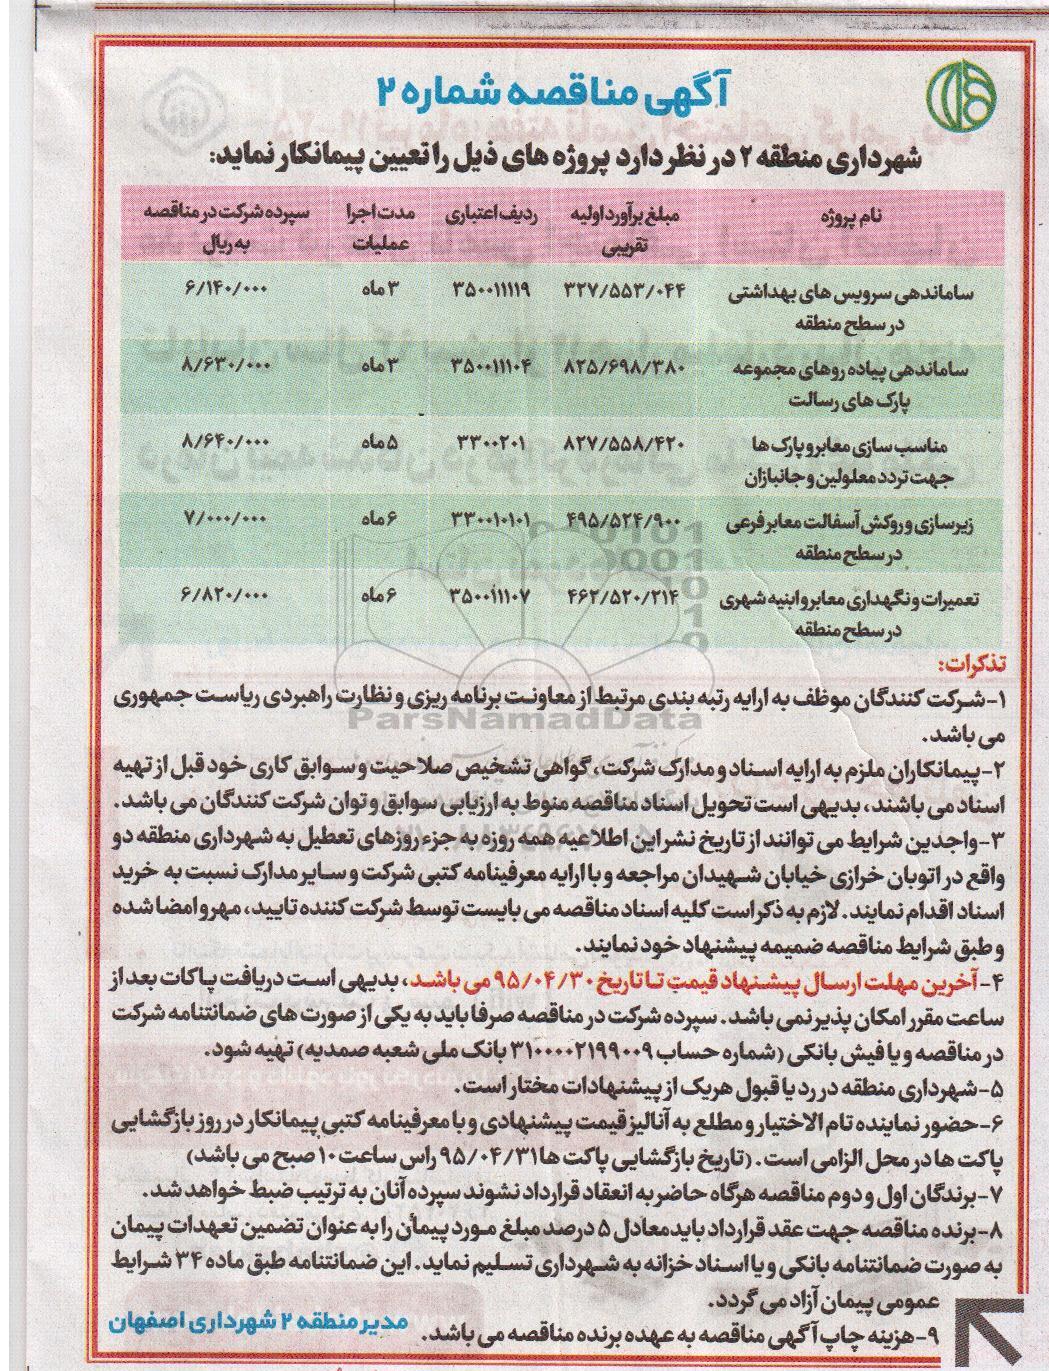 آگهی مناقصه شماره ۲
شهرداری منطقه ۲ در نظر دارد پروژه های ذیل را تعیین پیمانکار نماید:
نام پروژه	مبلغ برآورد اولیه تقریبی	ردیف اعتباری	مدت اجرا عملیات	سپرده شرکت در مناقصه به ریال
ساماندهی سرویس های بهداشتی در سطح منطقه	۳۲۷/۵۵۳/۰۴۴	۳۵۰۰۱۱۱۱۹	۳ ماه	۶/۱۴۰/۰۰۰
ساماندهی پیاده روهای مجموعه پارک های رسالت	۸۲۵/۶۹۸/۳۸۰	۳۵۰۰۱۱۱۰۴	۳ ماه	۸/۶۳۰/۰۰۰
مناسب سازی معابر و پارک ها جهت تردد معلولین و جانبازان	۸۲۷/۵۵۸/۴۲۰	۳۳۰۰۲۰۱	۵ ماه	۸/۶۴۰/۰۰۰
زیرسازی و روکش آسفالت معابر فرعی در سطح منطقه	۴۹۵/۵۲۴/۹۰۰	۳۳۰۰۱۰۱۰۱	۶ ماه	۷/۰۰۰/۰۰۰
تعمیرات و نگهداری معابر و ابنیه شهری در سطح منطقه	۴۶۲/۵۲۰/۲۱۴	۳۵۰۰۱۱۱۰۷	۶ ماه	۶/۸۲۰/۰۰۰
تذکرات:
۱-شرکت کنندگان موظف به ارایه رتبه بندی مرتبط از معاونت برنامه ریزی و نظارت راهبردی ریاست جمهوری
می باشد.
ParsNamadData
۲-پیمانکاران ملزم به ارایه اسناد و مدارک شرکت، گواهی تشخیص صلاحیت و سوابق کاری خود قبل از تهیه
اسناد می باشند، بدیهی است تحویل اسناد مناقصه منوط به ارزیابی سوابق و توان شرکت کنندگان می باشد.
۳-واجدین شرایط می توانند از تاریخ نشر این اطلاعیه همه روزه به جزء روزهای تعطیل به شهرداری منطقه دو
واقع در اتوبان خرازی خیابان شهیدان مراجعه و با ارایه معرفینامه کتبی شرکت و سایر مدارک نسبت به خرید
اسناد اقدام نمایند. لازم به ذکر است کلیه اسناد مناقصه می بایست توسط شرکت کننده تایید، مهر و امضا شده
و طبق شرایط مناقصه ضمیمه پیشنهاد خود نمایند.
۴-آخرین مهلت ارسال پیشنهاد قیمت تا تاریخ ۹۵/۰۴/۳۰ می باشد، بدیهی است دریافت پاکات بعد از
ساعت مقرر امکان پذیر نمی باشد. سپرده شرکت در مناقصه صرفا باید به یکی از صورت های ضمانتنامه شرکت
در مناقصه و یا فیش بانکی (شماره حساب ۳۱۰۰۰۰۲۱۹۹۰۰۹ بانک ملی شعبه صمدیه) تهیه شود.
۵-شهرداری منطقه در رد یا قبول هریک از پیشنهادات مختار است.
۶-حضور نماینده تام الاختیار و مطلع به آنالیز قیمت پیشنهادی و با معرفینامه کتبی پیمانکار در روز بازگشایی
پاکت ها در محل الزامی است. (تاریخ بازگشایی پاکت ها ۹۵/۰۴/۳۱ راس ساعت ۱۰ صبح می باشد)
۷-برندگان اول و دوم مناقصه هرگاه حاضر به انعقاد قرارداد نشوند سپرده آنان به ترتیب ضبط خواهد شد.
۸-برنده مناقصه جهت عقد قرارداد باید معادل ۵ درصد مبلغ مورد پیمان را به عنوان تضمین تعهدات پیمان
به صورت ضمانتنامه بانکی و یا اسناد خزانه به شهرداری تسلیم نماید. این ضمانتنامه طبق ماده ۳۴ شرایط
عمومی پیمان آزاد می گردد.
۹-هزینه چاپ آگهی مناقصه به عهده برنده مناقصه می باشد.
مدیر منطقه ۲ شهرداری اصفهان